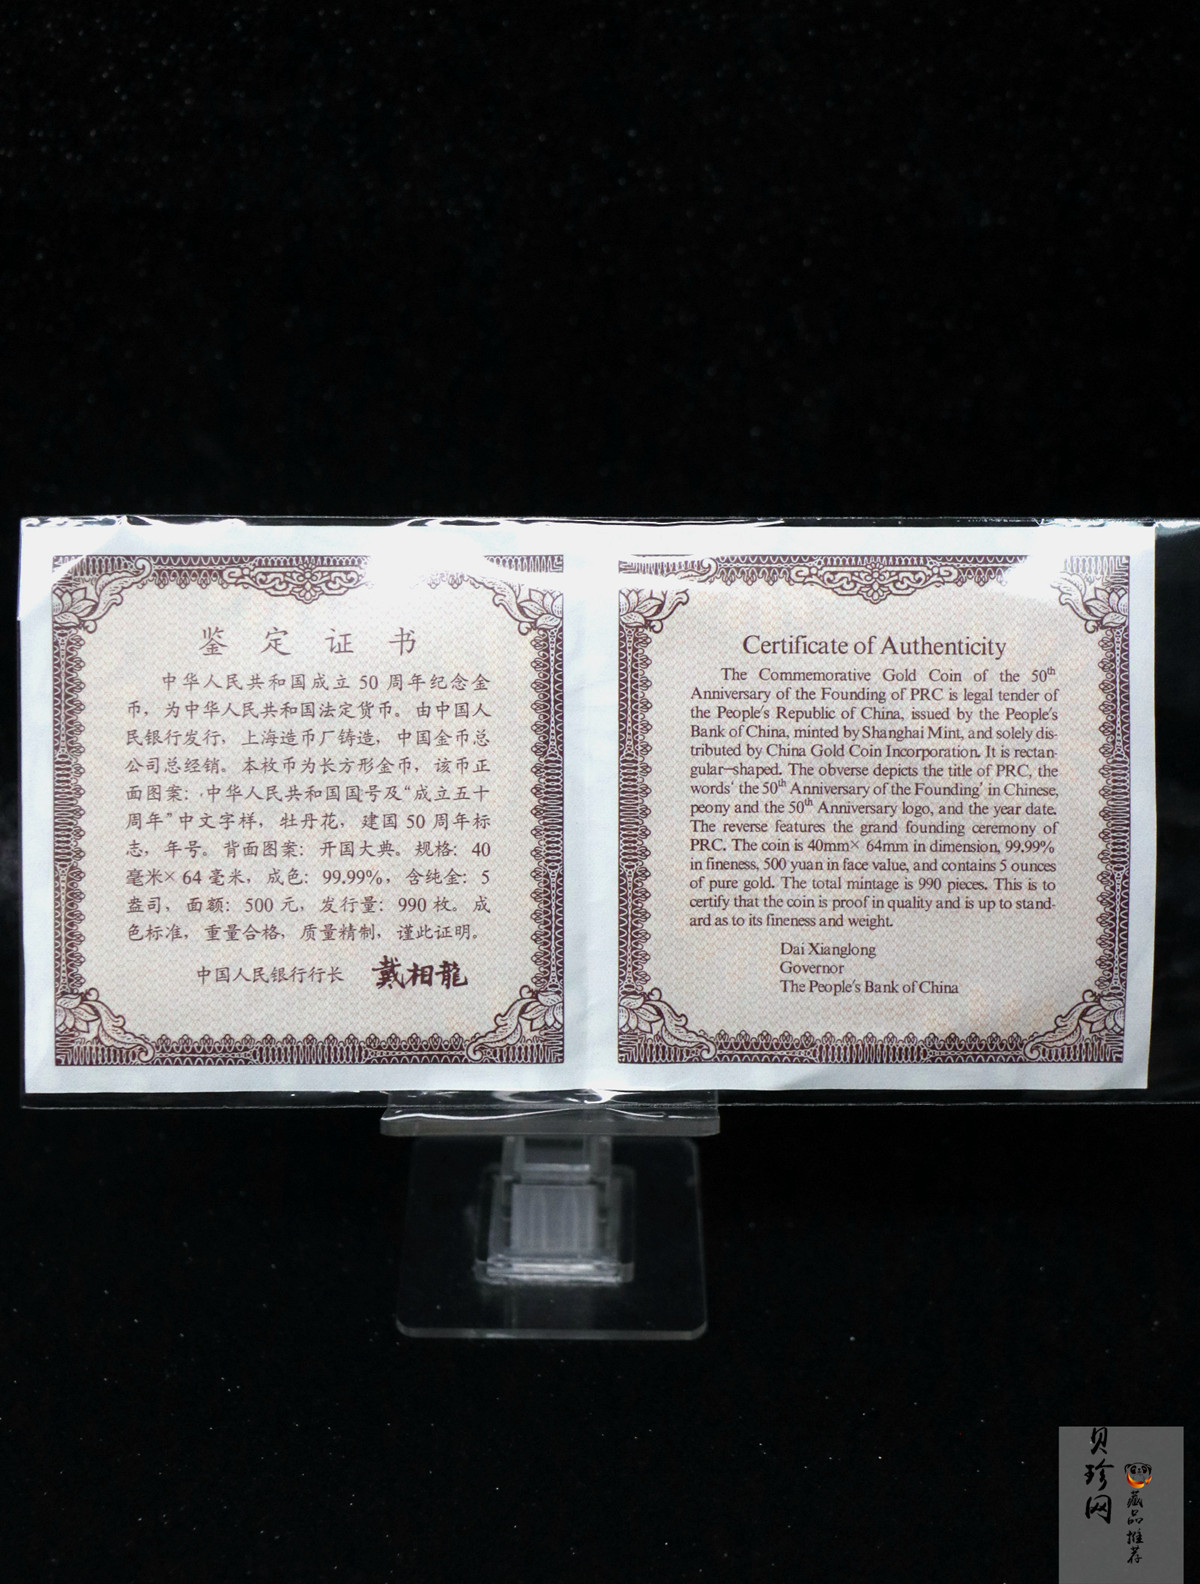 鉴定证书
中华人民共和国成立50周年纪念金
币，为中华人民共和国法定货币。由中国人
民银行发行，上海造币厂铸造，中国金币总
公司总经销。本枚币为长方形金币，该币正
面图案：中华人民共和国国号及“成立五十
周年”中文字样，牡丹花，建国50周年标
志，年号。背面图案：开国大典。规格：40
毫米×64毫米，成色：99.99%，含纯金：5
盎司，面额：500元，发行量：990枚。成
色标准，重量合格，质量精制，谨此证明。
中国人民银行行长 戴相龍
Certificate of Authenticity
The Commemorative Gold Coin of the 50th
Anniversary of the Founding of PRC is legal tender of
the People's Republic of China, issued by the People's
Bank of China, minted by Shanghai Mint, and solely dis-
tributed by China Gold Coin Incorporation. It is rectan-
gular-shaped. The obverse depicts the title of PRC, the
words' the 50th Anniversary of the Founding' in Chinese,
peony and the 50th Anniversary logo, and the year date.
The reverse features the grand founding ceremony of
PRC. The coin is 40mm× 64mm in dimension, 99.99%
in fineness, 500 yuan in face value, and contains 5 ounces
of pure gold. The total mintage is 990 pieces. This is to
certify that the coin is proof in quality and is up to stand-
ard as to its fineness and weight.
Dai Xianglong
Governor
The People's Bank of China
贝珍网
藏品推荐